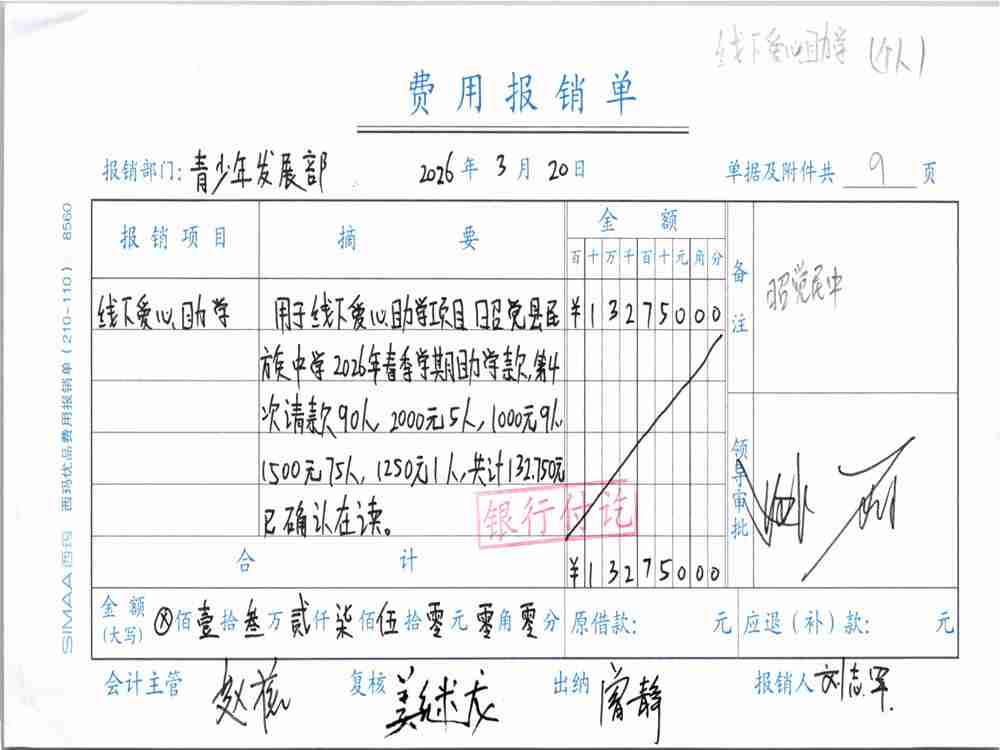 线下爱心助学(个人)
费用报销单
报销部门:青少年发展部 2026年3月20日 单据及附件共 9 页
报销项目 摘要 金额 备注
百十万千百十元角分
线下爱心助学 用于线下爱心助学项目昭觉县民 ¥13275000 昭觉民中
族中学2026年春季学期助学款,第4
次请款90人,2000元5人,1000元9人
1500元75人,1250元1人,共计132.750元
已确认在读。
银行付讫
领导审批
合计 ¥13275000
金额(大写) ⊗佰壹拾叁万贰仟柒佰伍拾零元零角零分 原借款: 元 应退(补)款: 元
会计主管 复核 出纳 曾静 报销人 刘志军
SIMAA西玛 西玛优品费用报销单(210-110) 8560